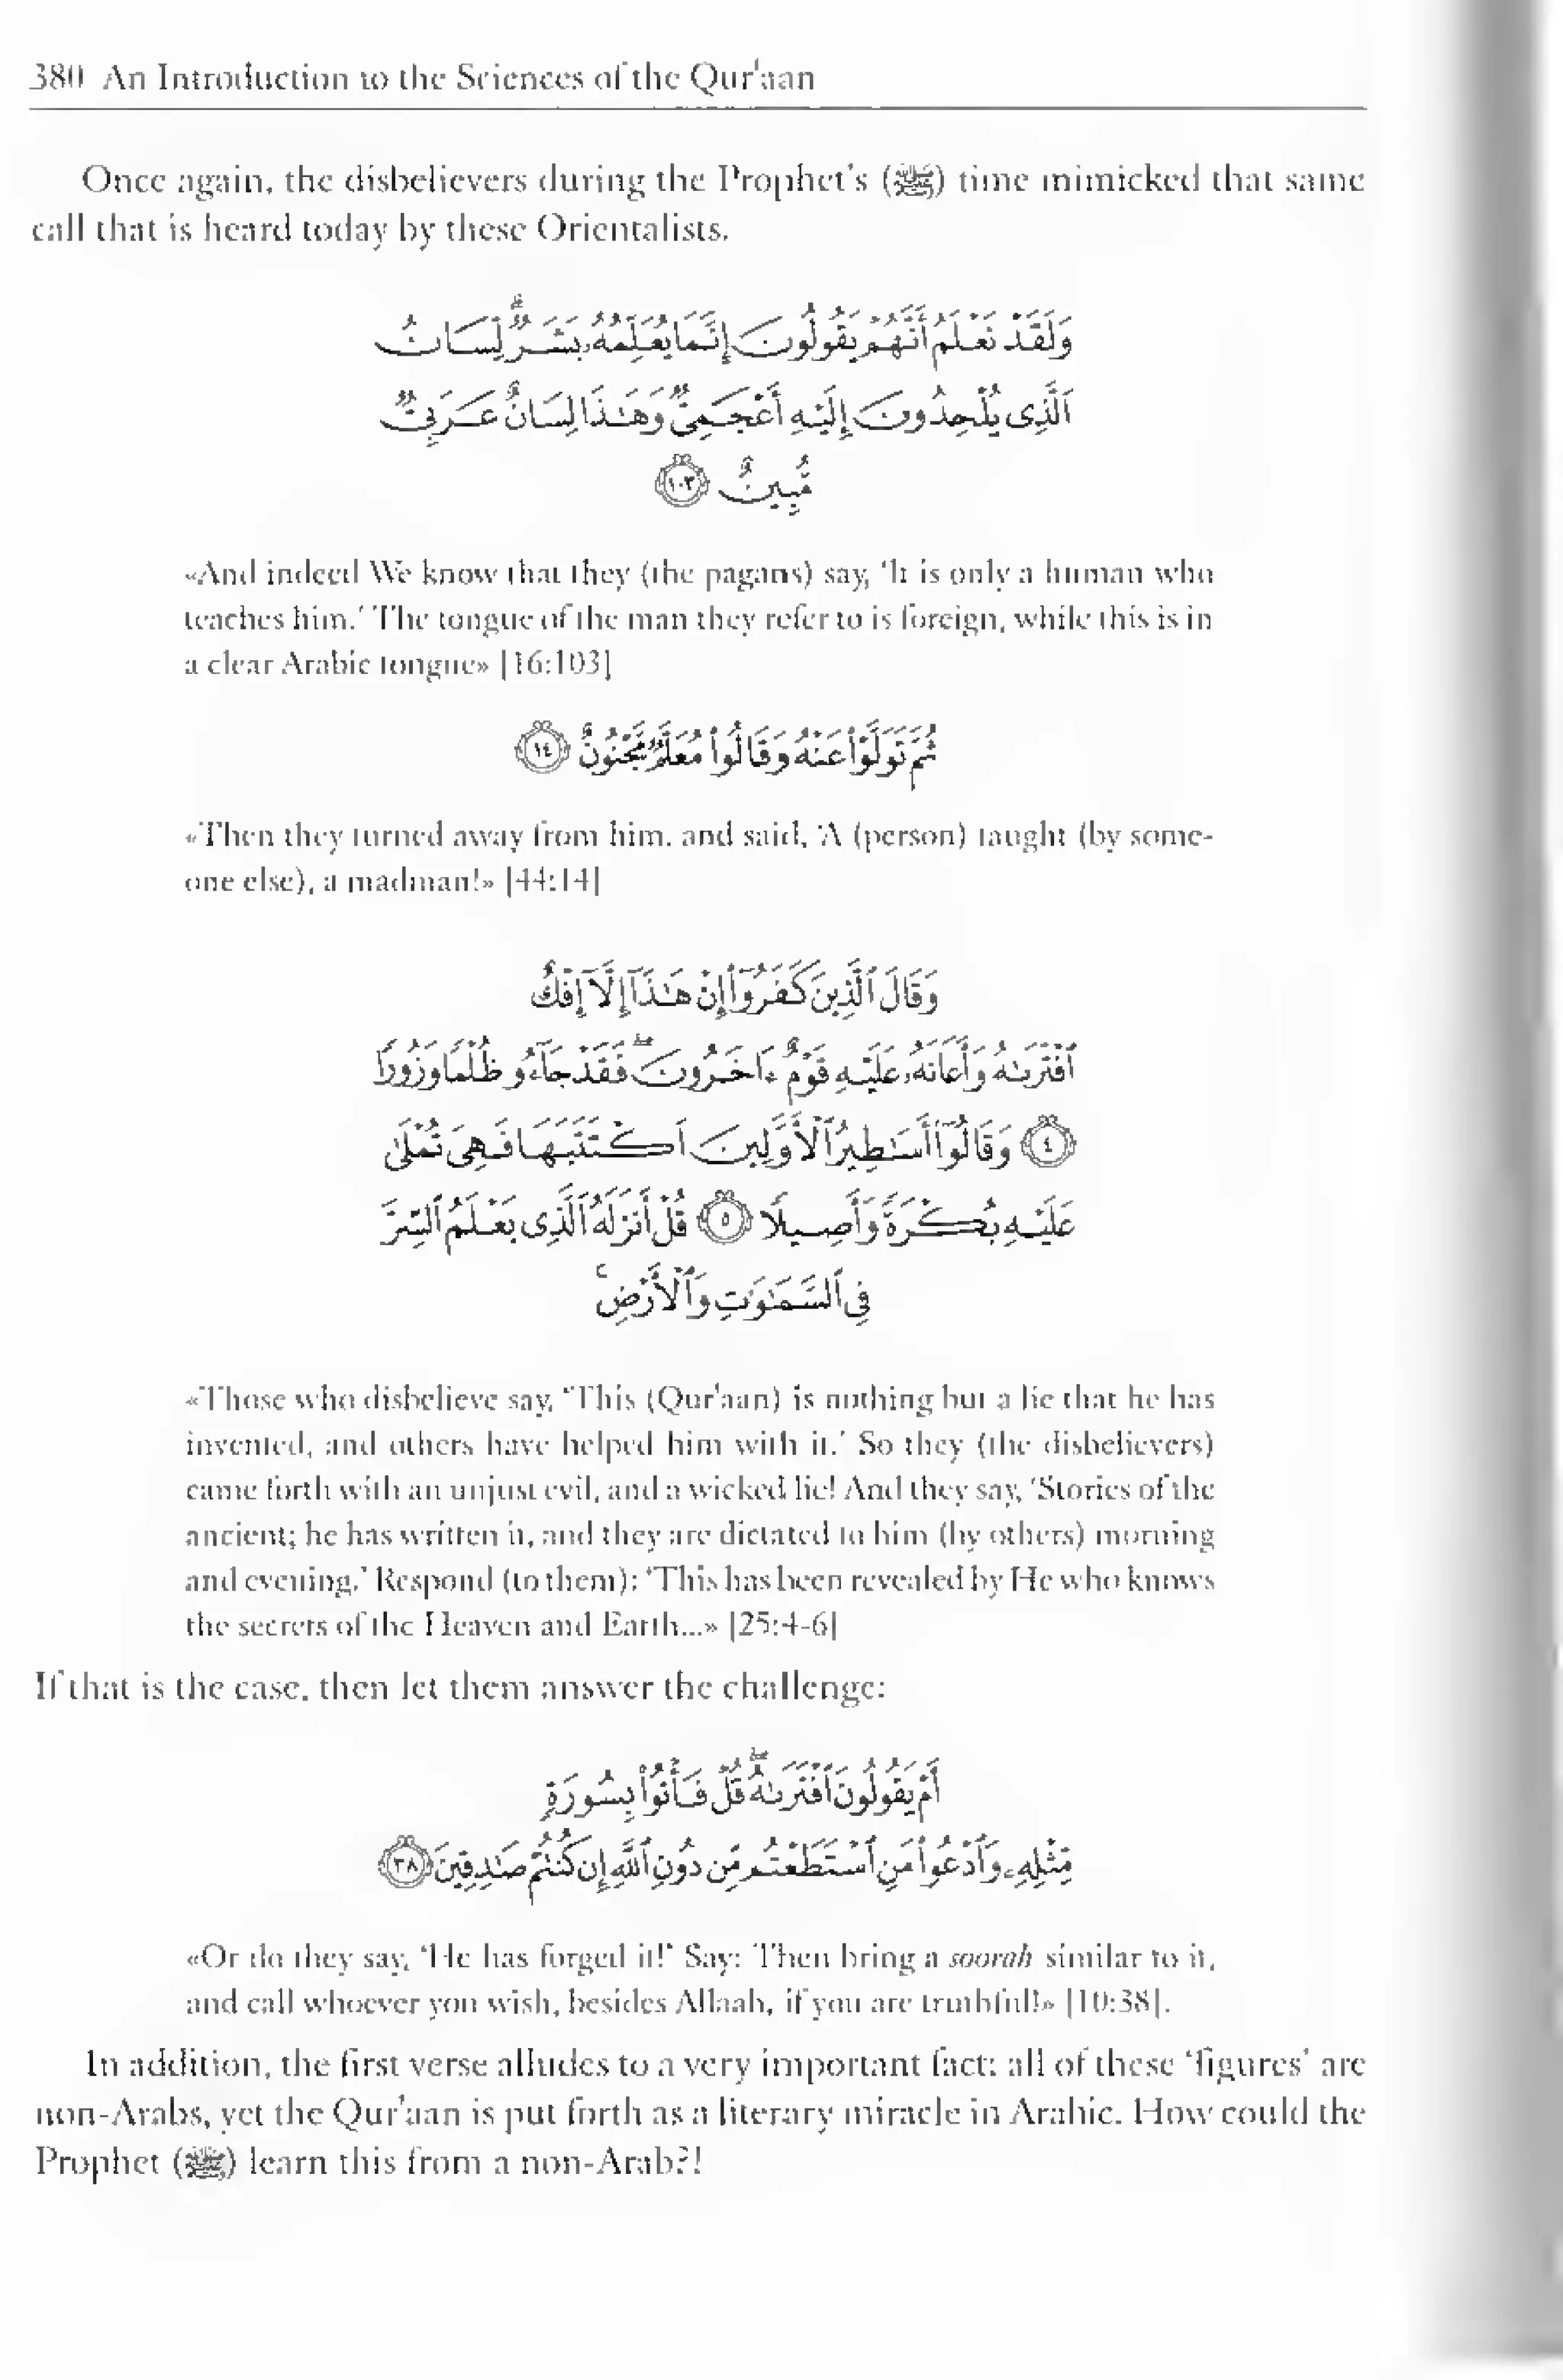 380 An Introduction to the Sciences of the Qur'aan
Once again, the disbelievers during the Prophet's (ﷺ) time mimicked that same
call that is heard today by these Orientalists.
وَلَقَدْ نَعْلَمُ أَنَّهُمْ يَقُولُونَ إِنَّمَا يُعَلِّمُهُۥ بَشَرٌ ۗ لِّسَانُ
ٱلَّذِى يُلْحِدُونَ إِلَيْهِ أَعْجَمِىٌّ وَهَـٰذَا لِسَانٌ عَرَبِىٌّ
مُّبِينٌ ۝١٠٣
«And indeed We know that they (the pagans) say, 'It is only a human who
teaches him.' The tongue of the man they refer to is foreign, while this is in
a clear Arabic tongue» [16:103]
ثُمَّ تَوَلَّوْا۟ عَنْهُ وَقَالُوا۟ مُعَلَّمٌ مَّجْنُونٌ ۝١٤
«Then they turned away from him, and said, 'A (person) taught (by some-
one else), a madman!» [44:14]
وَقَالَ ٱلَّذِينَ كَفَرُوٓا۟ إِنْ هَـٰذَآ إِلَّآ إِفْكٌ
ٱفْتَرَىٰهُ وَأَعَانَهُۥ عَلَيْهِ قَوْمٌ ءَاخَرُونَ ۖ فَقَدْ جَآءُو ظُلْمًا وَزُورًا
۝٤ وَقَالُوٓا۟ أَسَـٰطِيرُ ٱلْأَوَّلِينَ ٱكْتَتَبَهَا فَهِىَ تُمْلَىٰ
عَلَيْهِ بُكْرَةً وَأَصِيلًا ۝٥ قُلْ أَنزَلَهُ ٱلَّذِى يَعْلَمُ ٱلسِّرَّ
فِى ٱلسَّمَـٰوَٰتِ وَٱلْأَرْضِ ۚ
«Those who disbelieve say, 'This (Qur'aan) is nothing but a lie that he has
invented, and others have helped him with it.' So they (the disbelievers)
came forth with an unjust evil, and a wicked lie! And they say, 'Stories of the
ancient; he has written it, and they are dictated to him (by others) morning
and evening.' Respond (to them): 'This has been revealed by He who knows
the secrets of the Heaven and Earth...» [25:4-6]
If that is the case, then let them answer the challenge:
أَمْ يَقُولُونَ ٱفْتَرَىٰهُ ۖ قُلْ فَأْتُوا۟ بِسُورَةٍ
مِّثْلِهِۦ وَٱدْعُوا۟ مَنِ ٱسْتَطَعْتُم مِّن دُونِ ٱللَّهِ إِن كُنتُمْ صَـٰدِقِينَ ۝٣٨
«Or do they say, 'He has forged it!' Say: Then bring a soorah similar to it,
and call whoever you wish, besides Allaah, if you are truthful!» [10:38].
In addition, the first verse alludes to a very important fact: all of these 'figures' are
non-Arabs, yet the Qur'aan is put forth as a literary miracle in Arabic. How could the
Prophet (ﷺ) learn this from a non-Arab?!